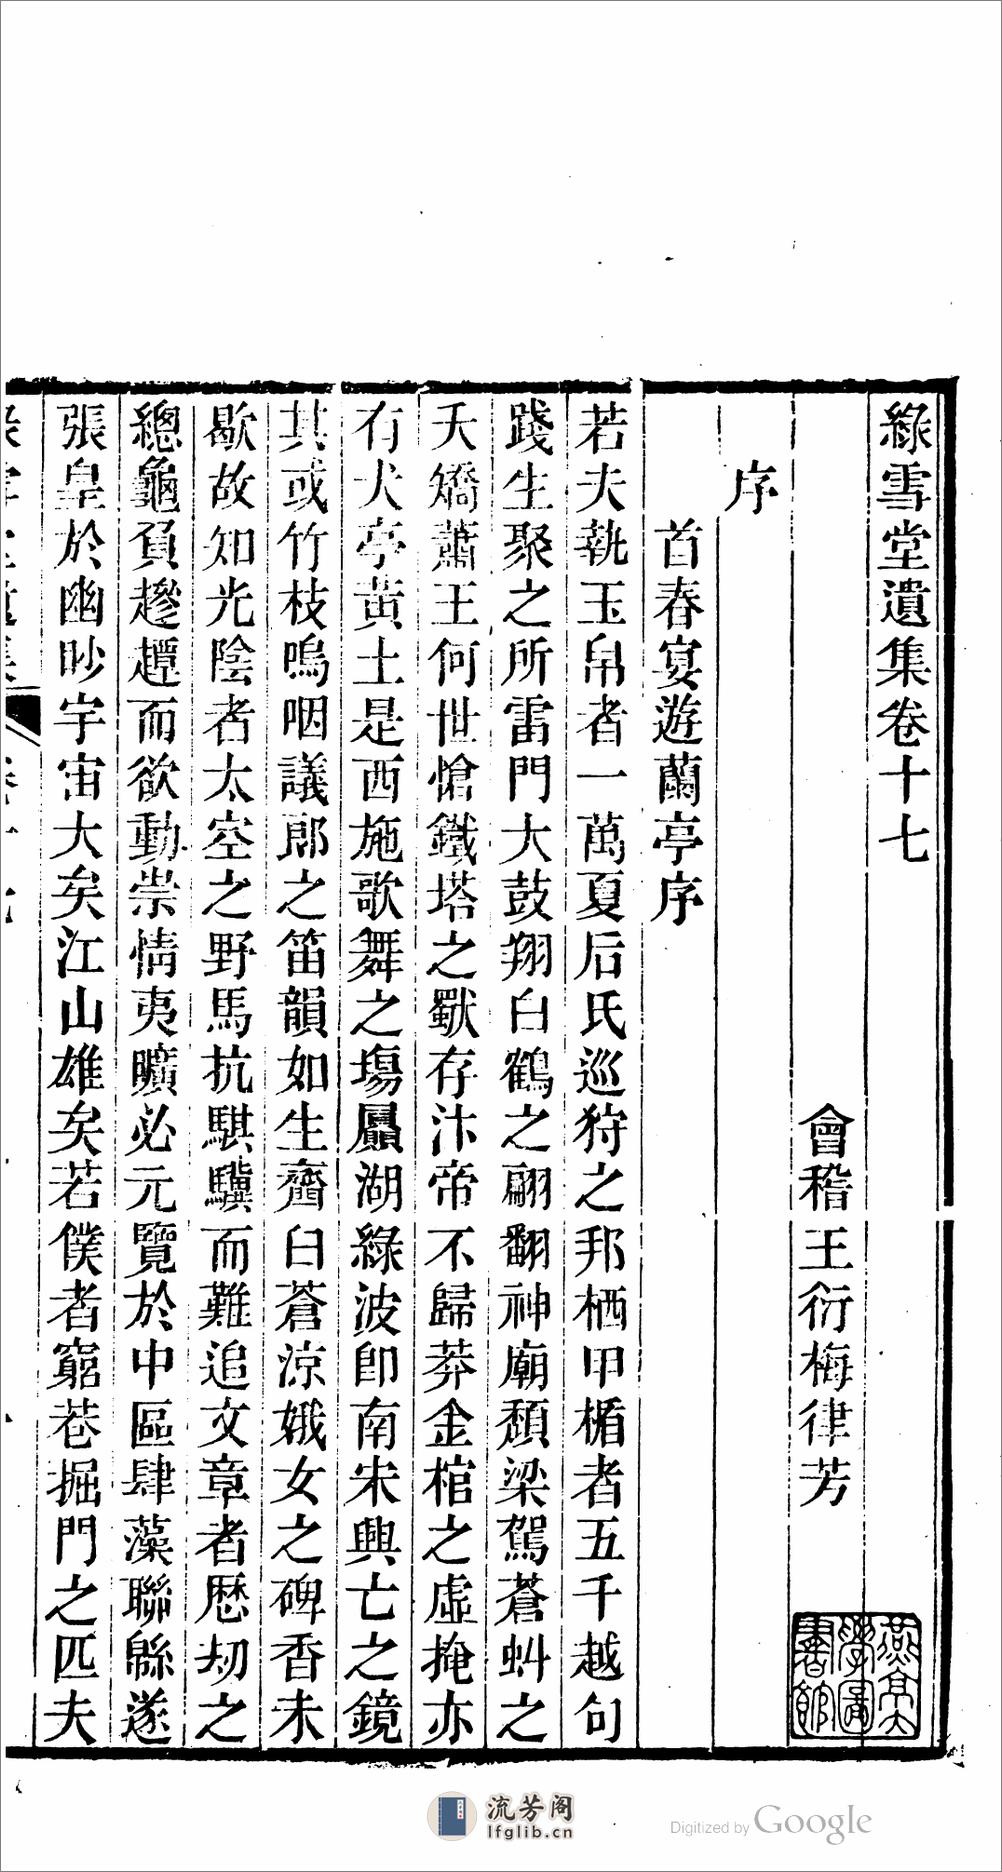 綠雪堂遺集卷十七
會稽王衍梅律芳
序
首春宴遊蘭亭序
若夫執玉帛者一萬夏后氏巡狩之邦栖甲楯者五千越句
踐生聚之所雷門大鼓翔白鶴之翩翻神廟頹梁駕蒼虯之
夭矯蕭王何世愴鐵塔之獸存汴帝不歸莽金棺之虛掩亦
有犬亭黃土是西施歌舞之塲鳳湖綠波卽南宋興亡之鏡
其或竹枝嗚咽議郎之笛韻如生虀臼蒼涼娥女之碑香未
歇故知光陰者太空之野馬抗騏驥而難追文章者歷刼之
總龜負趦趄而欲動崇情夷曠必元覽於中區肆藻聯緜遂
張皇於幽眇宇宙大矣江山雄矣若僕者窮巷掘門之匹夫
燕京大學圖書館
流芳阁
lfglib.cn
Digitized by Google